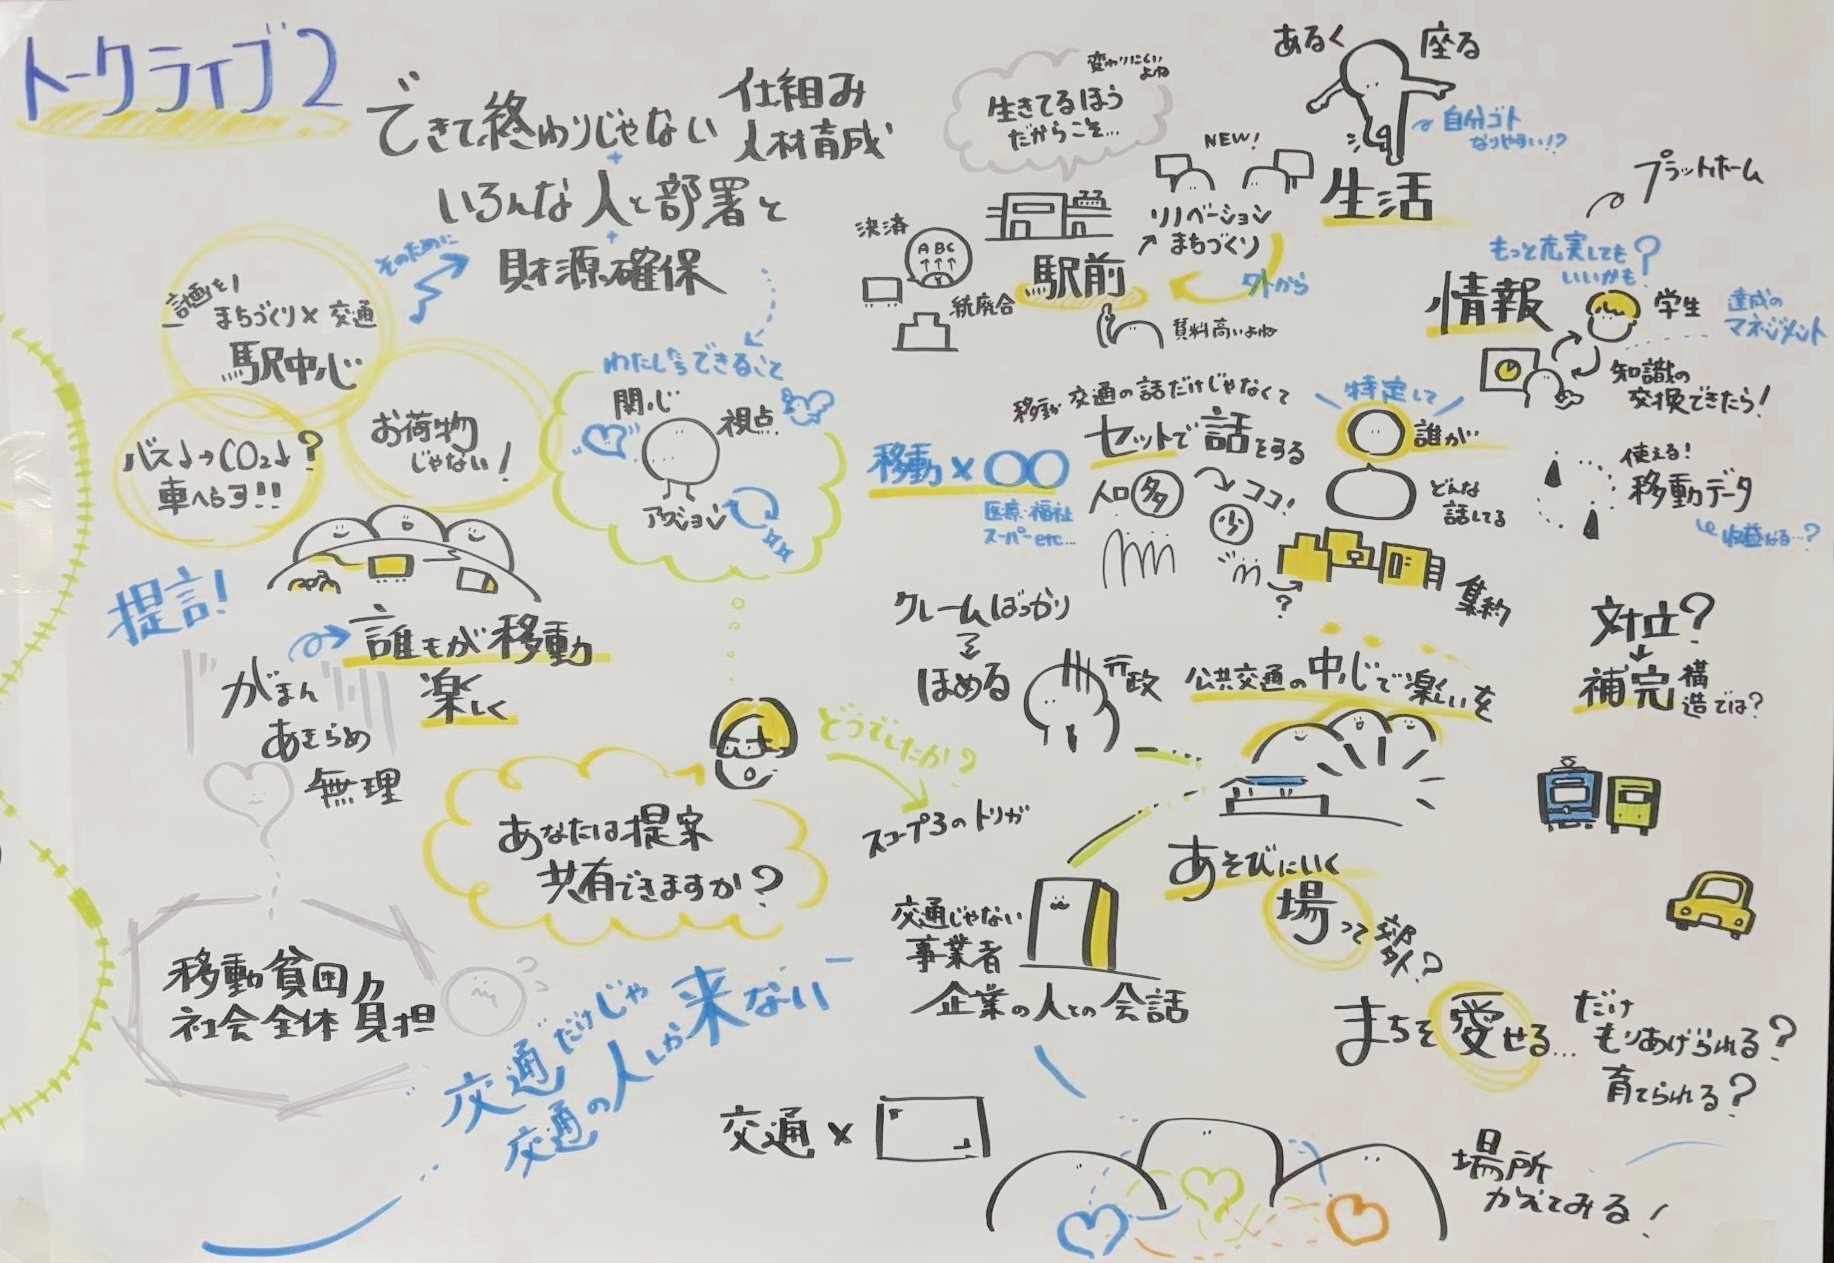 トークライブ2
できて終わりじゃない
仕組み
人材育成
+
いろんな人と部署と
+
財源確保
そのために
計画を!
まちづくり×交通
駅中心
バス↓→CO₂↓?
車へらす!!!
お荷物
じゃない!
わたしたちできること
関心
視点
アクション
提言!
誰もが移動
楽しく
がまん
あきらめ
無理
移動貧困
社会全体負担
あなたは提案
共有できますか?
どうでしたか?
スコープ3のトリガ
交通だけじゃ
交通の人しか来ない
変わりにくい
よね
生きてるほう
だからこそ…
あるく
座る
自分ゴト
なりやすい!?
生活
NEW!
リノベーション
まちづくり
外から
決済
ABC
統廃合
駅前
賃料高いよね
プラットホーム
もっと充実しても
いいかも?
情報
学生
達成の
マネジメント
知識の
交換できたら!
使える!
移動データ
収益なる…?
移動×〇〇
医療・福祉
スーパーetc…
移動 交通の話だけじゃなくて
セットで話をする
人口多
少
ココ!
?
特定して
誰が
どんな
話してる
集約
クレームばっかり
ほめる
行政
公共交通の中心で楽しいを
対立?
補完構造では?
あそびにいく
場って
交通じゃない
事業者
企業の人との会話
まちを愛せる…
だけ
もりあげられる?
育てられる?
交通×
場所
かえてみる!